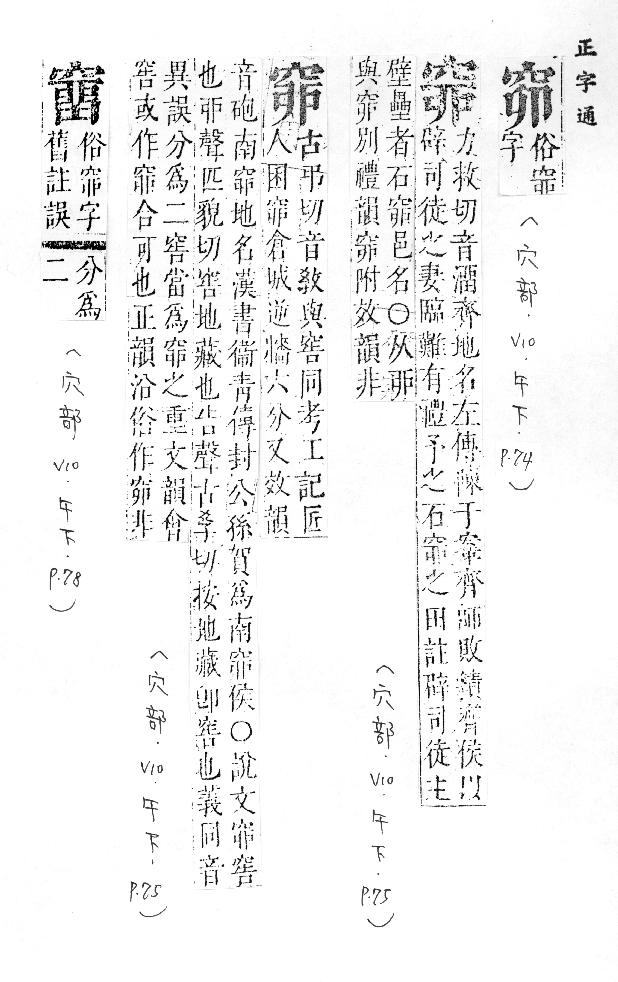 正字通
窌 俗窌
字
〈穴部．V10．午下．P.74〉
窌 力救切音溜齊地名左傳陳于鞌齊師敗績齊侯以
辟司徒之妻臨難有禮予之石窌之田註辟司徒主
壁壘者石窌邑名〇从丣
與窌別禮韻窌附效韻非
〈穴部．V10．午下．P.75〉
窌 古弔切音教與窖同考工記匠
人囷窌倉城逆牆六分又效韻
音砲南窌地名漢書衞青傳封公孫賀爲南窌侯〇說文窌窖
也丣聲匹貌切窖地藏也告聲古孝切按地藏卽窖也義同音
異誤分爲二窖當爲窌之重文韻會
窖或作窌合可也正韻沿俗作窌非
〈穴部．V10．午下．P.75〉
俗窌字
舊註誤
分爲
二
〈穴部 V10．午下．P.78〉